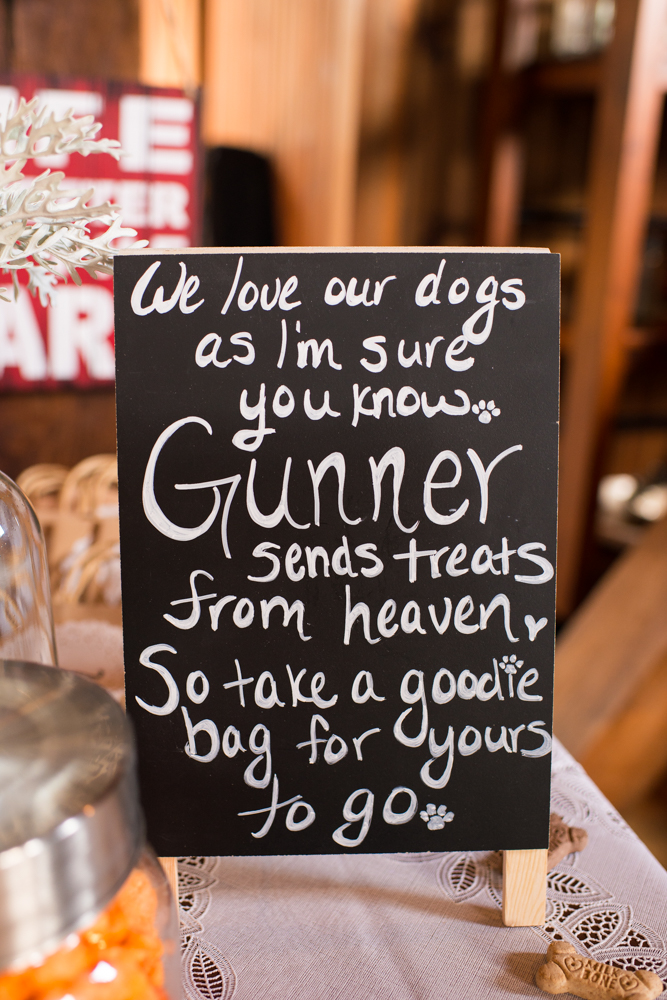 We love our dogs
as I'm sure
you know
Gunner
sends treats
from heaven
So take a goodie
bag for yours
to go
MILK
BONE